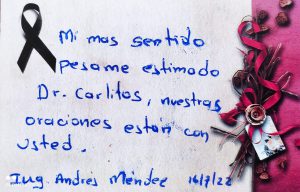 Mi mas sentido
pesame estimado
Dr. Carlitos, nuestras
oraciones están con
usted.
Ing. Andres Méndez 16/7/22